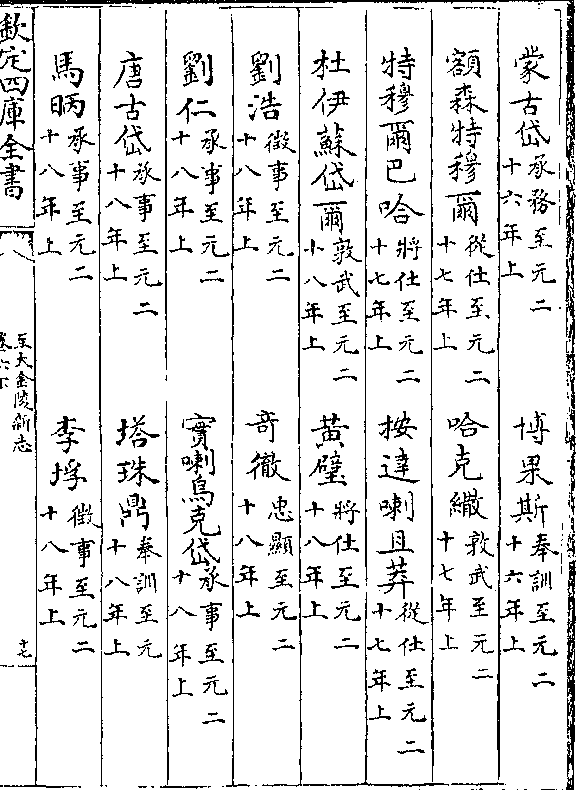 蒙古岱承務至元二十六年上 博果斯奉訓至元二十六年上
額森特穆爾從仕至元二十七年上 哈克繖敦武至元二十七年上
特穆爾巴哈將仕至元二十七年上 按達喇且莽從仕至元二十七年上
杜伊蘇岱爾敦武至元二十八年上 黃璧將仕至元二十八年上
劉浩徵事至元二十八年上 奇徹忠顯至元二十八年上
劉仁承事至元二十八年上 實喇烏克岱承事至元二十八年上
唐古岱承事至元二十八年上 塔珠鼎奉訓至元十八年上
馬昞承事至元二十八年上 李垺徵事至元二十八年上
欽定四庫全書
至大金陵新志
卷六下
十七